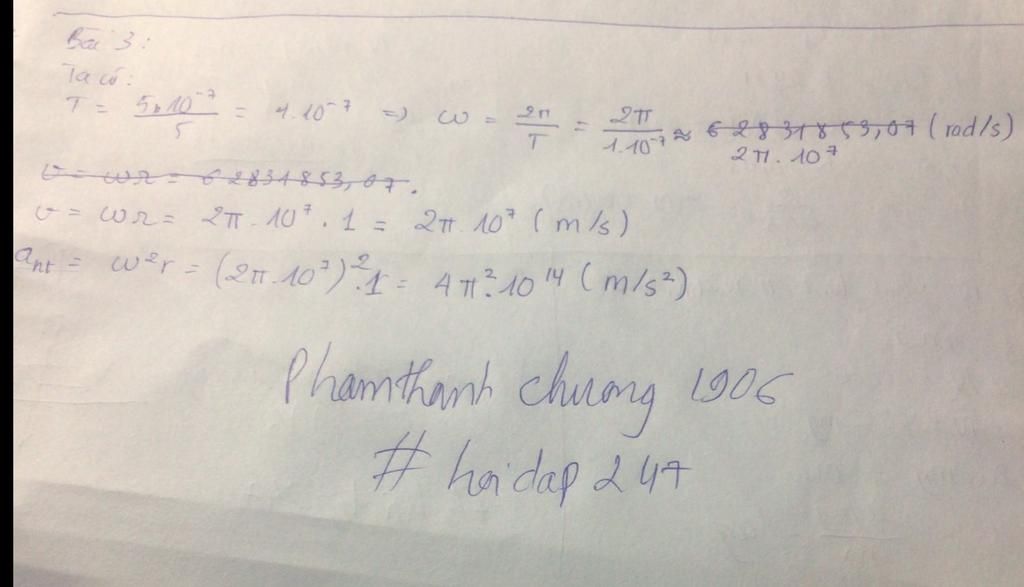 Bài 3:
Ta có:
T = 5.10⁻⁷/5 = 1.10⁻⁷ => ω = 2π/T = 2π/1.10⁻⁷ ≈ 62831853,07 (rad/s)
2π.10⁷
v = ωr = 62831853,07.
v = ωr = 2π.10⁷.1 = 2π.10⁷ (m/s)
aht = ω²r = (2π.10⁷)².1 = 4π².10¹⁴ (m/s²)
Phamthanh chuong 1906
# hoidap 247